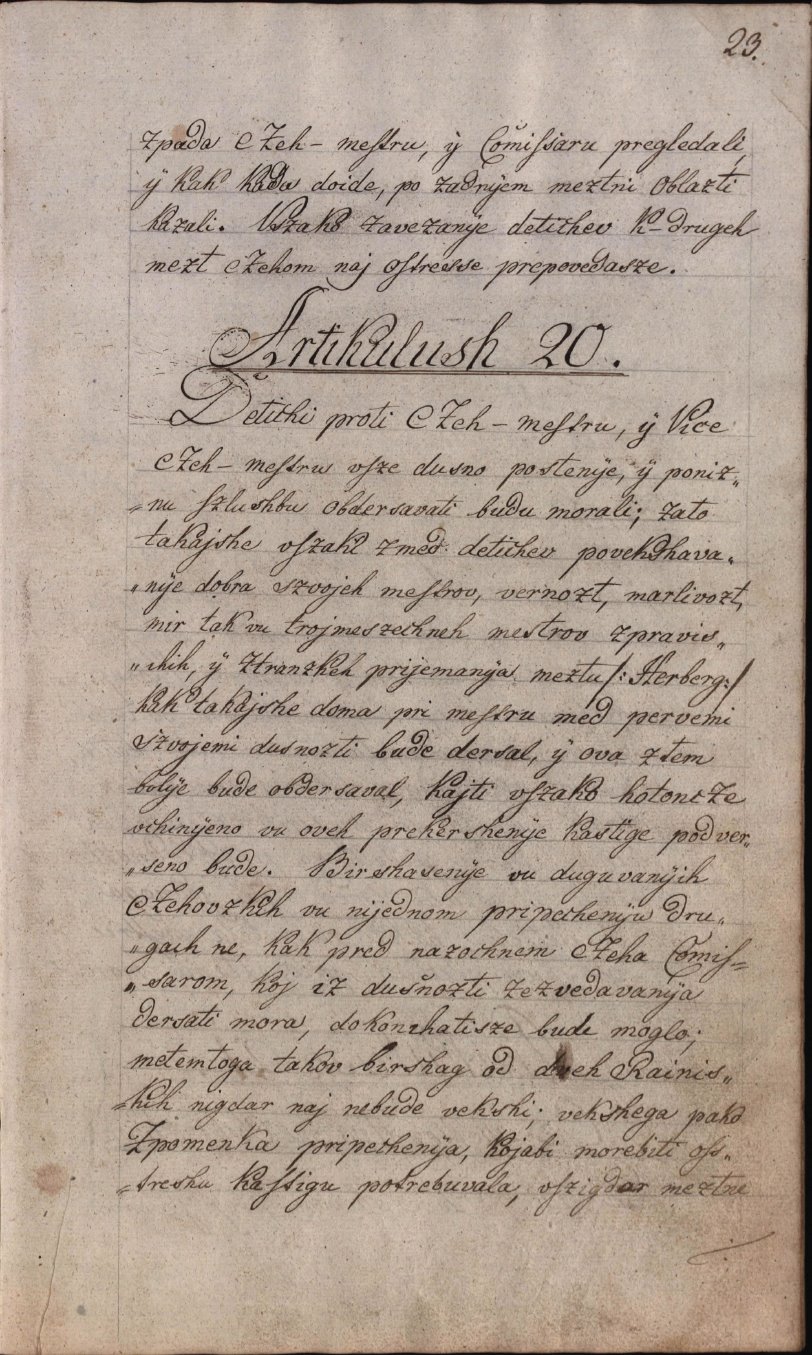 23.
zpada cZeh - mestru, ÿ Cõmissaru pregledali,
ÿ kak kada doide, po zadnÿem meztni Oblazti
kazali. Vszako zavezanÿe detichev k-drugeh
mezt cZehom naj ostresse prepovedasze.
Artikulush 20.
Detichi proti cZeh - mestru, ÿ Vice
cZeh - mestru vsze dusno postenÿe, ÿ poniz„
„nu szlushbu obdersavati budu morali; zato
takajshe vszaki zmed detichev povekshava„
„nÿe dobra szvojeh mestrov, vernozt, marlivozt,
mir tak vu trojmeszechneh mestrov zpravis„
„chih, ÿ ztranzkeh prijemanÿa meztu /: Herberg :/
kak takajshe doma pri mestru med pervemi
szvojemi dusnozti bude dersal, ÿ ova ztem
bolÿe bude obdersaval, kajti vszako hotoncZe
vchinÿeno vu oveh prekershenÿe kastige podver„
„seno bude. Birshasenÿe vu duguvanÿih
cZehovzkeh vu nijednom pripechenÿu dru„
„gach ne, kak pred nazochnem cZeha Cõmis„
„sarom, koj iz dusnozti zezvedavanÿa
dersati mora, dokonchatisze bude moglo;
metemtoga takov birshag od dveh Rainis„
„keh nigdar naj nebude vekshi; vekshega pako
Zpomenka pripechenÿa, kojabi morebiti oss„
„treshu kastigu potrebuvala, vszigdar meztne